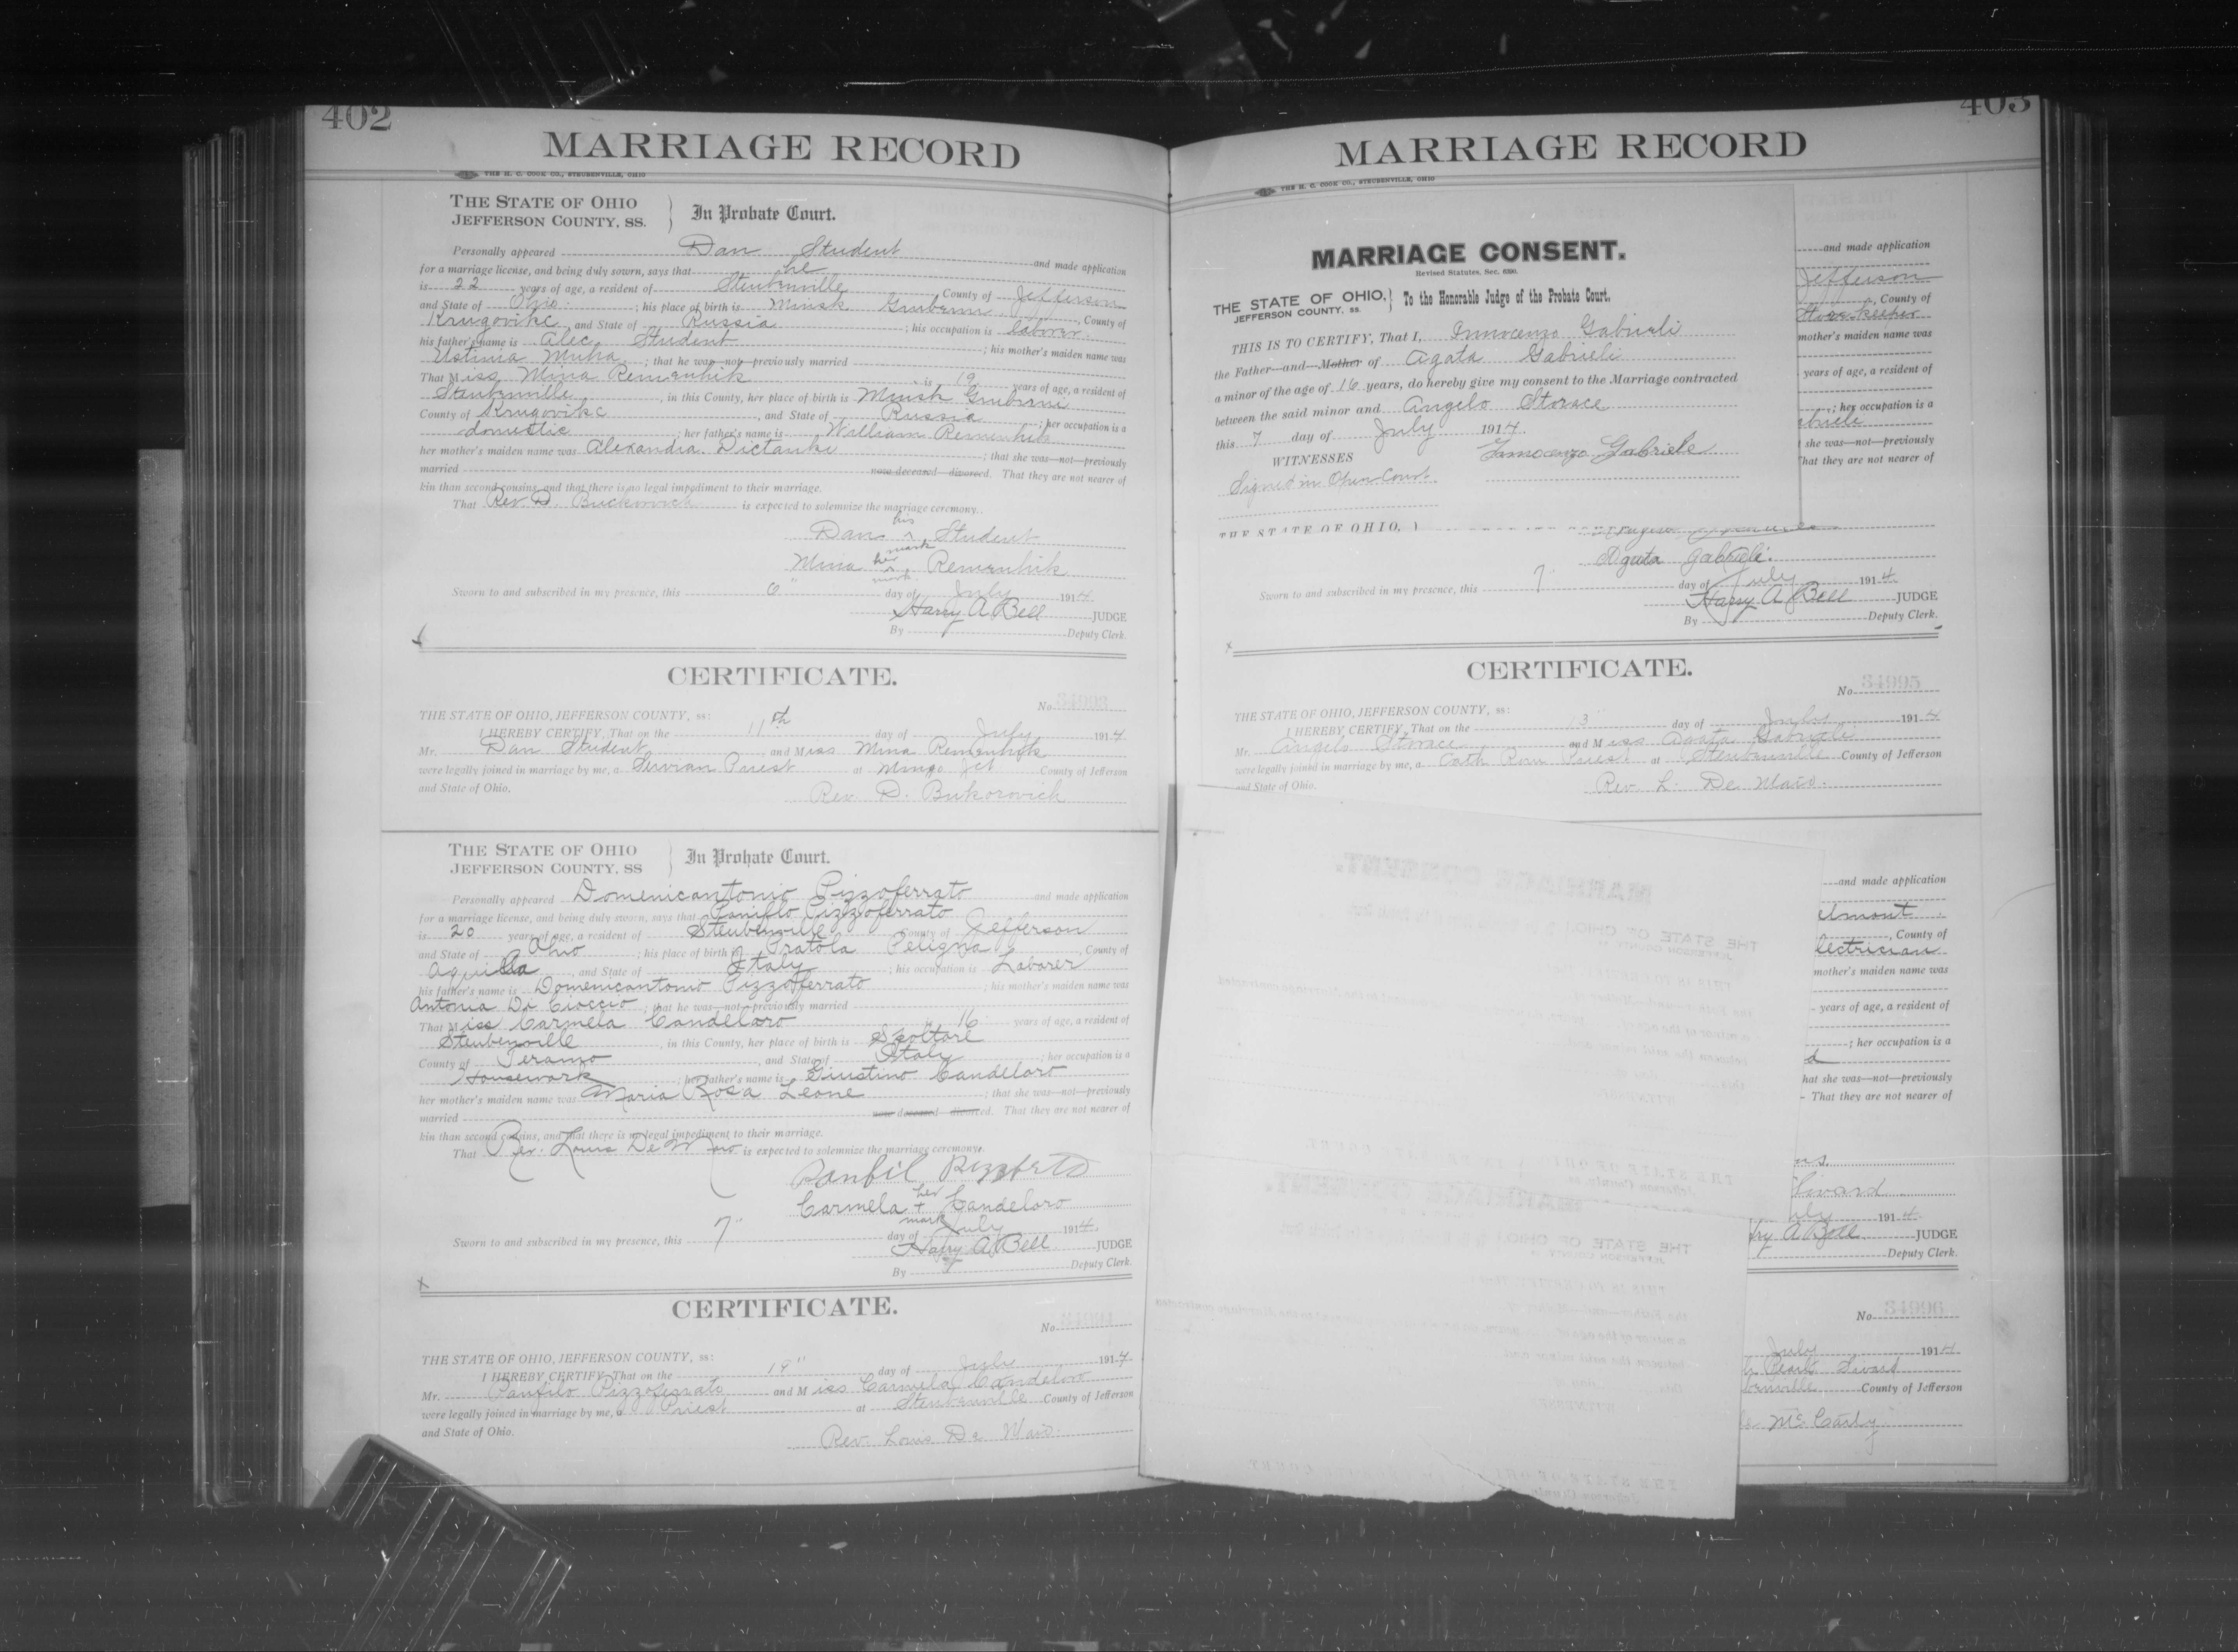 402
MARRIAGE RECORD
THE H. C. COOK CO., STEUBENVILLE, OHIO
THE STATE OF OHIO
JEFFERSON COUNTY, SS.
In Probate Court.
Personally appeared Dan Student and made application
for a marriage license, and being duly sworn, says that he
is 22 years of age, a resident of Steubenville County of Jefferson
and State of Ohio ; his place of birth is Minsk Gruberni, County of
Krugovikc and State of Russia ; his occupation is laborer
his father's name is Alec Student ; his mother's maiden name was
Ustinia Muha ; that he was—not—previously married
That Miss Mina Remenhik is 19 years of age, a resident of
Steubenville, in this County, her place of birth is Minsk Gruberni
County of Krugovikc, and State of Russia ; her occupation is a
domestic ; her father's name is William Remenhik
her mother's maiden name was Alexandia Dictanke ; that she was—not—previously
married now deceased divorced. That they are not nearer of
kin than second cousins, and that there is no legal impediment to their marriage.
That Rev. D. Buckovich is expected to solemnize the marriage ceremony.
Dan his mark Student
Mina her mark Remenhik
Sworn to and subscribed in my presence, this 6" day of July 1914
Harry A Bell JUDGE
By Deputy Clerk.
CERTIFICATE.
No. 34993
THE STATE OF OHIO, JEFFERSON COUNTY, ss:
I HEREBY CERTIFY, That on the 11th day of July 1914
Mr. Dan Student and Miss Mina Remenhik
were legally joined in marriage by me, a Servian Priest at Mingo Jct County of Jefferson
and State of Ohio. Rev. D. Bukorovich
THE STATE OF OHIO
JEFFERSON COUNTY, SS
In Probate Court.
Personally appeared Domenicantonio Pizzoferrato and made application
for a marriage license, and being duly sworn, says that Panfilo Pizzoferrato
is 20 years of age, a resident of Steubenville County of Jefferson
and State of Ohio ; his place of birth is Pratola Peligna, County of
Aquila, and State of Italy ; his occupation is Laborer
his father's name is Domenicantonio Pizzoferrato ; his mother's maiden name was
Antonia Di Cioccio ; that he was—not—previously married
That Miss Carmela Candeloro is 16 years of age, a resident of
Steubenville, in this County, her place of birth is Spoltore
County of Teramo, and State of Italy ; her occupation is a
Housework ; her father's name is Giustino Candeloro
her mother's maiden name was Maria Rosa Leone ; that she was—not—previously
married now deceased divorced. That they are not nearer of
kin than second cousins, and that there is no legal impediment to their marriage.
That Rev. Louis De Maio is expected to solemnize the marriage ceremony.
Carmela her + mark Candeloro
Sworn to and subscribed in my presence, this 7" day of July 1914
Harry A Bell JUDGE
By Deputy Clerk.
CERTIFICATE.
No.
THE STATE OF OHIO, JEFFERSON COUNTY, ss:
I HEREBY CERTIFY, That on the day of July 1914
Mr. Panfilo Pizzoferrato and Miss Carmela Candeloro
were legally joined in marriage by me, a Priest at Steubenville County of Jefferson
and State of Ohio. Rev. Louis De Maio.
403
MARRIAGE RECORD
THE H. C. COOK CO., STEUBENVILLE, OHIO
MARRIAGE CONSENT.
Revised Statutes, Sec. 6390.
THE STATE OF OHIO,
JEFFERSON COUNTY. ss.
To the Honorable Judge of the Probate Court.
THIS IS TO CERTIFY, That I, Innocenzo Gabrieli
the Father—and—Mother of Agata Gabrieli
a minor of the age of 16 years, do hereby give my consent to the Marriage contracted
between the said minor and Angelo Storace
this 7 day of July 1914.
WITNESSES Innocenzo Gabriele
Signed in Open Court.
THE STATE OF OHIO,
and made application
Jefferson
, County of
Storekeeper
mother's maiden name was
years of age, a resident of
; her occupation is a
abriele
she was—not—previously
That they are not nearer of
Agata Gabrieli
Sworn to and subscribed in my presence, this 7 day of July 1914
Harry A Bell JUDGE
By Deputy Clerk.
CERTIFICATE.
No. 34995
THE STATE OF OHIO, JEFFERSON COUNTY, ss:
I HEREBY CERTIFY, That on the 13 day of July 1914
Mr. Angelo Storace and Miss Agata Gabrieli
were legally joined in marriage by me, a Cath Rom Priest at Steubenville County of Jefferson
and State of Ohio. Rev. L. De Maio.
and made application
elmont
, County of
lectrician
mother's maiden name was
years of age, a resident of
; her occupation is a
d
hat she was—not—previously
That they are not nearer of
ns.
uly 1914
rry A Bell JUDGE
Deputy Clerk.
No. 34996
July 1914
Pearl Siward
County of Jefferson
Mc Carty